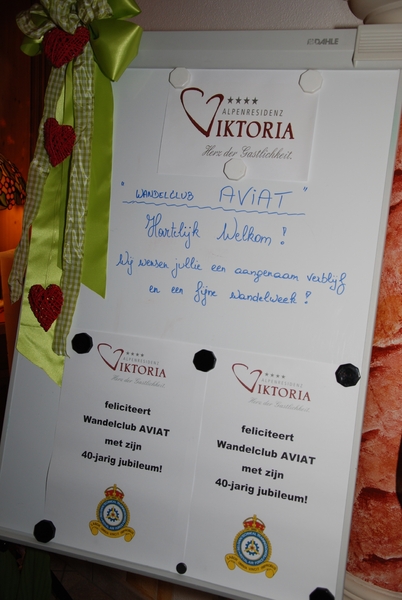 DAHLE
★★★★
ALPENRESIDENZ
VIKTORIA
Herz der Gastlichkeit.
" WANDELCLUB AVIAT "
Hartelijk Welkom !
Wij wensen jullie een aangenaam verblijf
en een fijne wandelweek !
★★★★
ALPENRESIDENZ
VIKTORIA
Herz der Gastlichkeit.
feliciteert
Wandelclub AVIAT
met zijn
40-jarig jubileum!
★★★★
ALPENRESIDENZ
VIKTORIA
Herz der Gastlichkeit.
feliciteert
Wandelclub AVIAT
met zijn
40-jarig jubileum!